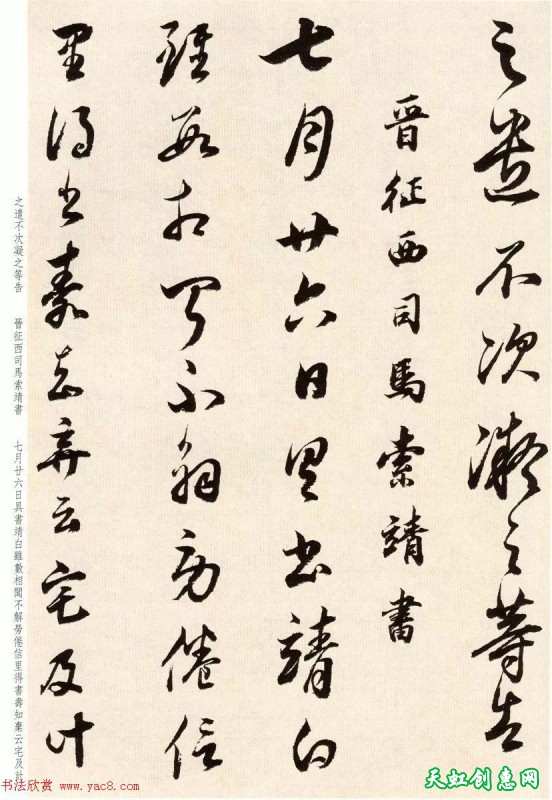 之遗不次凝之等告
晋征西司馬索靖書
七月廿六日具書靖白
雖數相聞不解勞倦信
里得書壽知棄云宅及计
之遺不次凝之等告　晉征西司馬索靖書　七月廿六日具書靖白雖數相聞不解勞倦信里得書壽知棄云宅及計
书法欣赏 www.yac8.com
天虹创意网